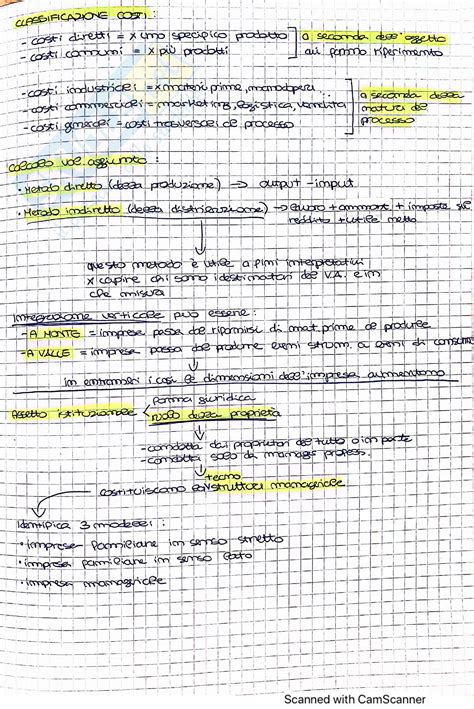 CLASSIFICAZIONE COSTI:
- costi diretti = x uno specifico prodotto
a seconda dell'oggetto
- costi comuni = x più prodotti
cui fanno riferimento
- costi industriali = x materie prime, manodopera..
a seconda della
- costi commerciali = marketing, logistica, vendita
natura del
- costi generali = costi trasversali al processo
processo
Calcolo val aggiunto:
• Metodo diretto (della produzione) → output - input
• Metodo indiretto (della distribuzione) → lavoro + ammort. + imposte sul
reddito + utile netto
questo metodo è utile a fini interpretativi
x capire chi sono i destinatari del V.A. e in
che misura
Integrazione verticale può essere:
- A MONTE = impresa passa dal rifornirsi di mat. prime al produrle
- A VALLE = impresa passa dal produrre beni strum. a beni di consumo
in entrambi i casi le dimensioni dell'impresa aumentano
Assetto istituzionale
forma giuridica
ruolo della proprietà
- condotta dai proprietari del tutto o in parte
- condotta solo da manager profess.
costituiscono
struttura manageriale
Identifica 3 modelli:
• impresa familiare in senso stretto
• impresa familiare in senso lato
• impresa manageriale
Scanned with CamScanner